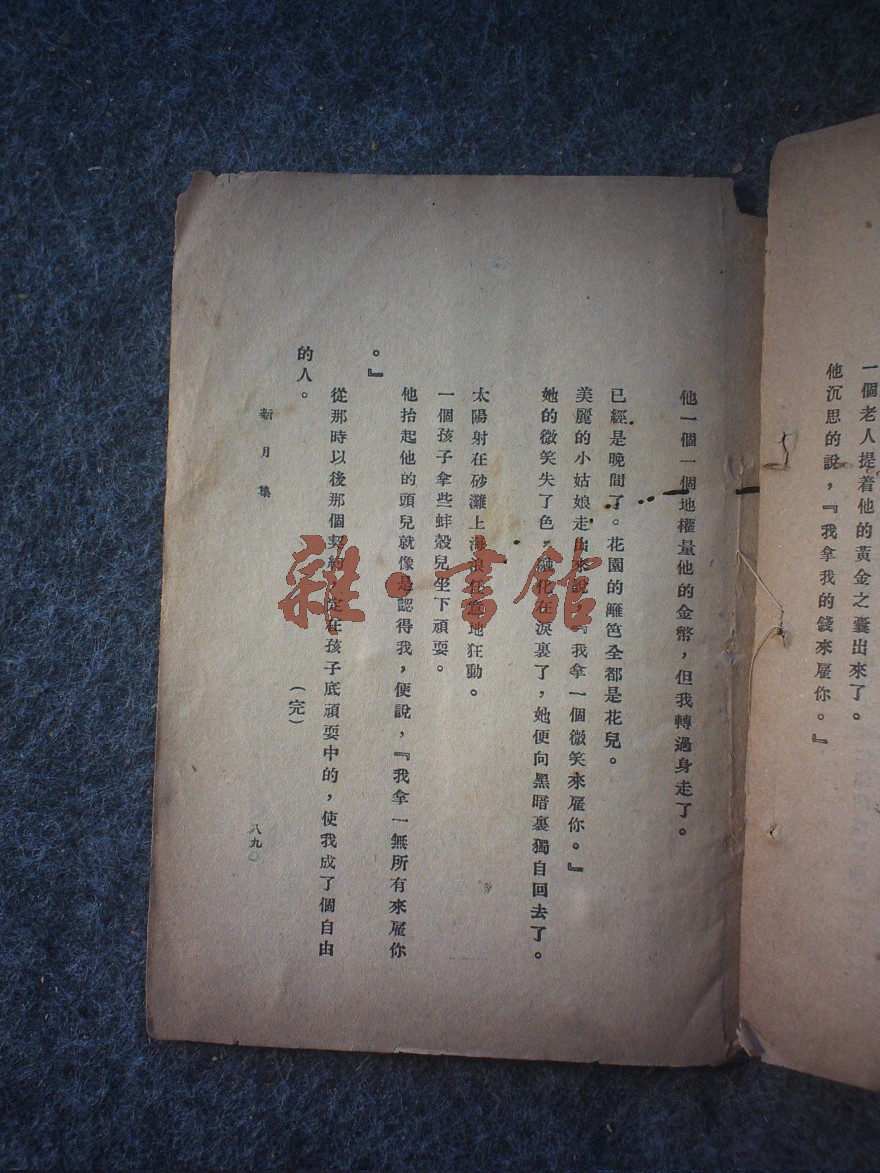 一個老人提着他的黃金之囊出來了。
他沉思的說，『我拿我的錢來雇你。』
他一個一個地權量他的金幣，但我轉過身走了。
已經是晚間了。花園的籬笆全都是花兒。
美麗的小姑娘走出來說，『我拿一個微笑來雇你。』
她的微笑失了色，融化在淚裏了，她便向黑暗裏獨自回去了。
太陽射在砂灘上海浪任意地狂動。
一個孩子拿些蚌殼兒坐下頑耍。
他抬起他的頭兒就像是認得我，便說，『我拿一無所有來雇你
。』
從那時以後那個契約定在孩子底頑耍中的，使我成了個自由
的人。
（完）
新月集
八九〇
雜·書館